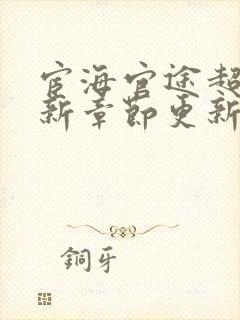 宦海官途超
新章節更新
銅牙